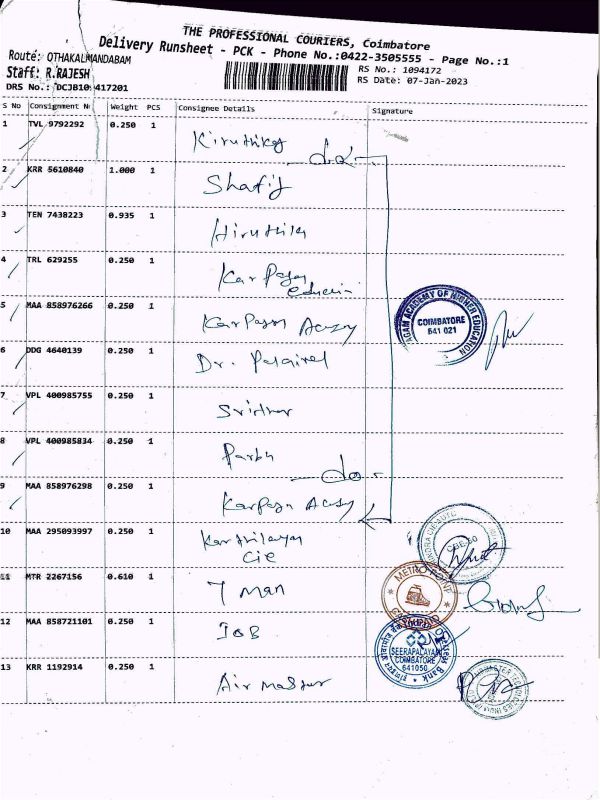 THE PROFESSIONAL COURIERS, Coimbatore
Delivery Runsheet - PCK - Phone No.:0422-3505555 - Page No.:1
Route: OTHAKALMANDABAM
Staff: R.RAJESH
DRS No.: DCJB10 417201
RS No.: 1094172
RS Date: 07-Jan-2023
S No Consignment Nr Weight PCS Consignee Details Signature
1 TVL 9792292 0.250 1 Kiruthika
do
2 KRR 5610840 1.000 1 Shafij
3 TEN 7438223 0.935 1 Hiruthik
4 TRL 629255 0.250 1 Karpagam
5 MAA 858976266 0.250 1 Karpagam
6 DDG 4640139 0.250 1 Dr.
7 VPL 400985755 0.250 1 Sridhar
8 VPL 400985834 0.250 1
do
9 MAA 858976298 0.250 1 Karpagam
10 MAA 295093997 0.250 1
cie
11 MTR 2267156 0.610 1 T Man
12 MAA 858721101 0.250 1 IOB
13 KRR 1192914 0.250 1 Air Master
ACADEMY OF HIGHER EDUCATION
COIMBATORE
641 021
METRO POINT
SEERAPALAYAM
COIMBATORE
641050
Bank